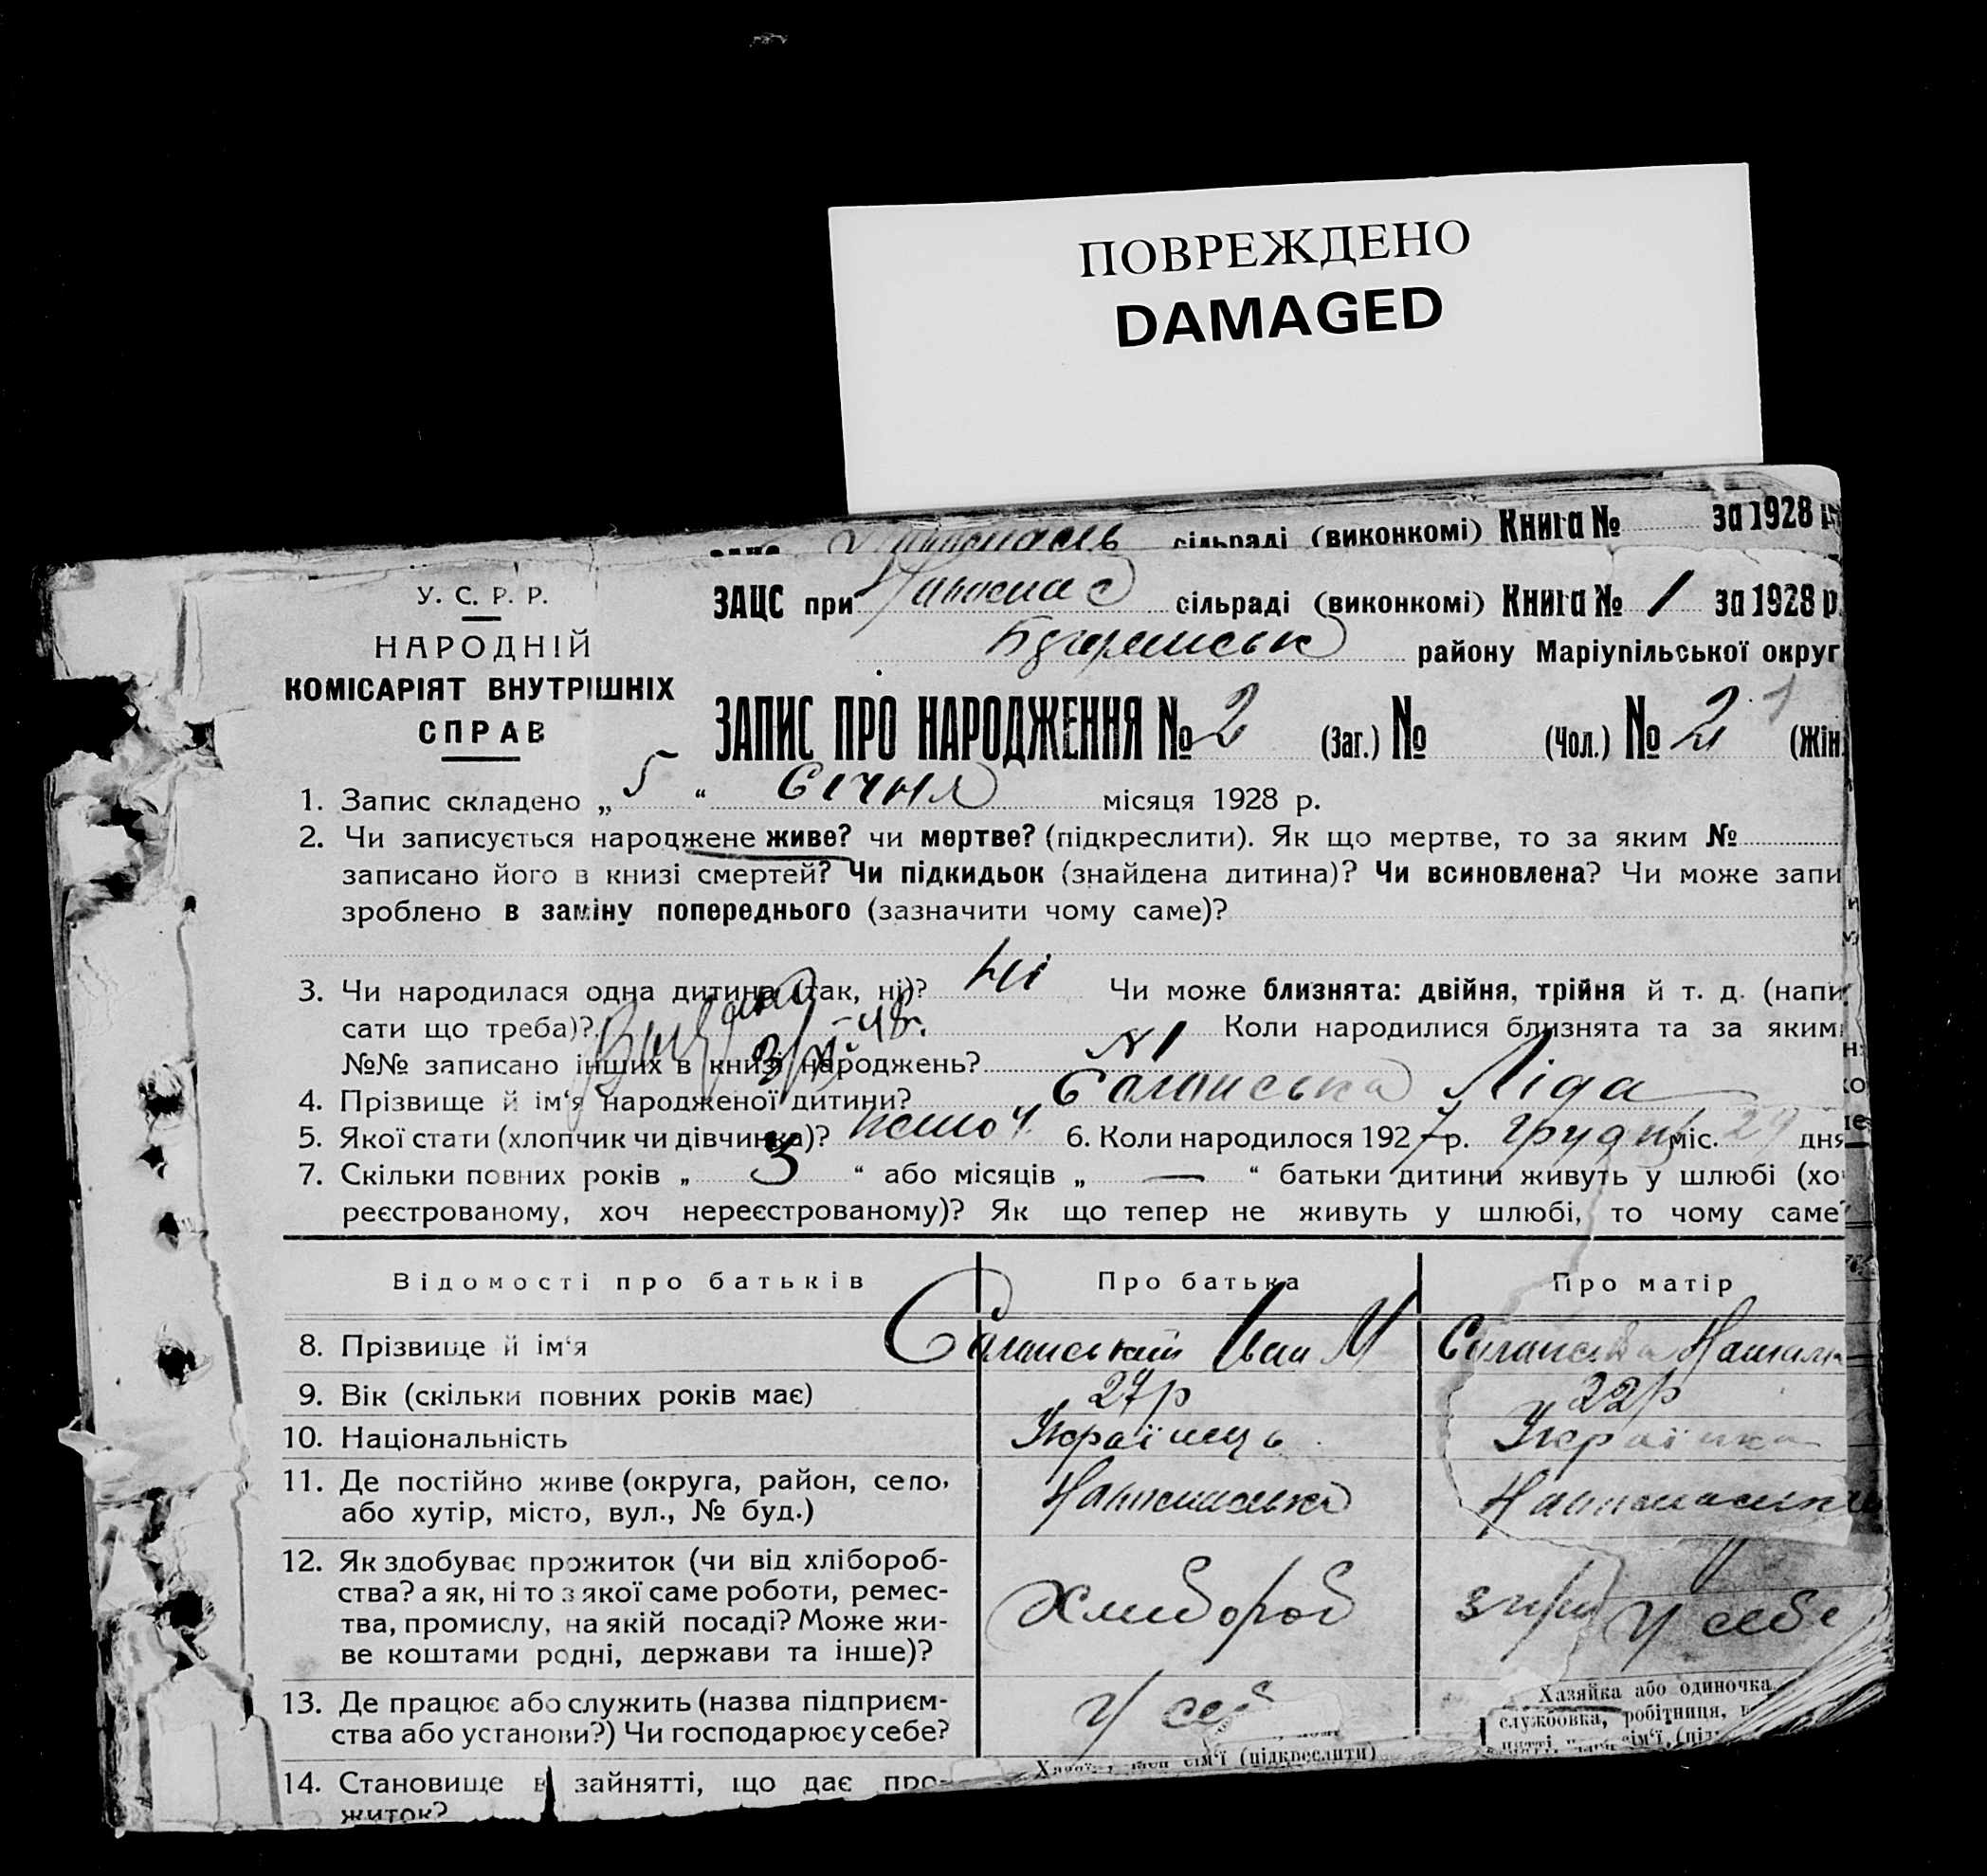 ПОВРЕЖДЕНО
DAMAGED
сільраді (виконкомі) Книга № за 1928 р.
У. С. Р. Р.
НАРОДНІЙ
КОМІСАРІЯТ ВНУТРІШНІХ
СПРАВ
ЗАЦС при сільраді (виконкомі) Книга № 1 за 1928 р.
району Маріупільської округ
ЗАПИС ПРО НАРОДЖЕННЯ № 2 (Заг.) № (Чол.) № 2 1 (Жін.
1. Запис складено „ 5 “ Січня місяця 1928 р.
2. Чи записується народжене живе? чи мертве? (підкреслити). Як що мертве, то за яким №
записано його в книзі смертей? Чи підкидьок (знайдена дитина)? Чи всиновлена? Чи може запи
зроблено в заміну попереднього (зазначити чому саме)?
3. Чи народилася одна дитина (так, ні)? Ні Чи може близнята: двійня, трійня й т. д. (напи
сати що треба)? Коли народилися близнята та за яким
№№ записано інших в книзі народжень? №1
4. Прізвище й ім‘я народженої дитини? Саланська Ліда
5. Якої стати (хлопчик чи дівчинка)? 6. Коли народилося 1927 р. Грудня міс. 29 дня
7. Скільки повних років „ 3 “ або місяців „ — “ батьки дитини живуть у шлюбі (хо
реєстрованому, хоч нереєстрованому)? Як що тепер не живуть у шлюбі, то чому саме?
Відомості про батьків Про батька Про матір
8. Прізвище й ім‘я Саланський Іван М Саланська Наталя
9. Вік (скільки повних років має) 27 р 22 р
10. Національність Українець Українка
11. Де постійно живе (округа, район, село,
або хутір, місто, вул., № буд.)
12. Як здобуває прожиток (чи від хлібороб-
ства? а як, ні то з якої саме роботи, ремес-
тва, промислу, на якій посаді? Може жи-
ве коштами родні, держави та інше)?
Хлибороб
у себе
13. Де працює або служить (назва підприєм-
ства або установи?) Чи господарює у себе?
У себ
Хазяйка або одиночка,
службовка, робітниця,
сім‘ї (підкреслити)
14. Становище в зайнятті, що дає про-
житок?